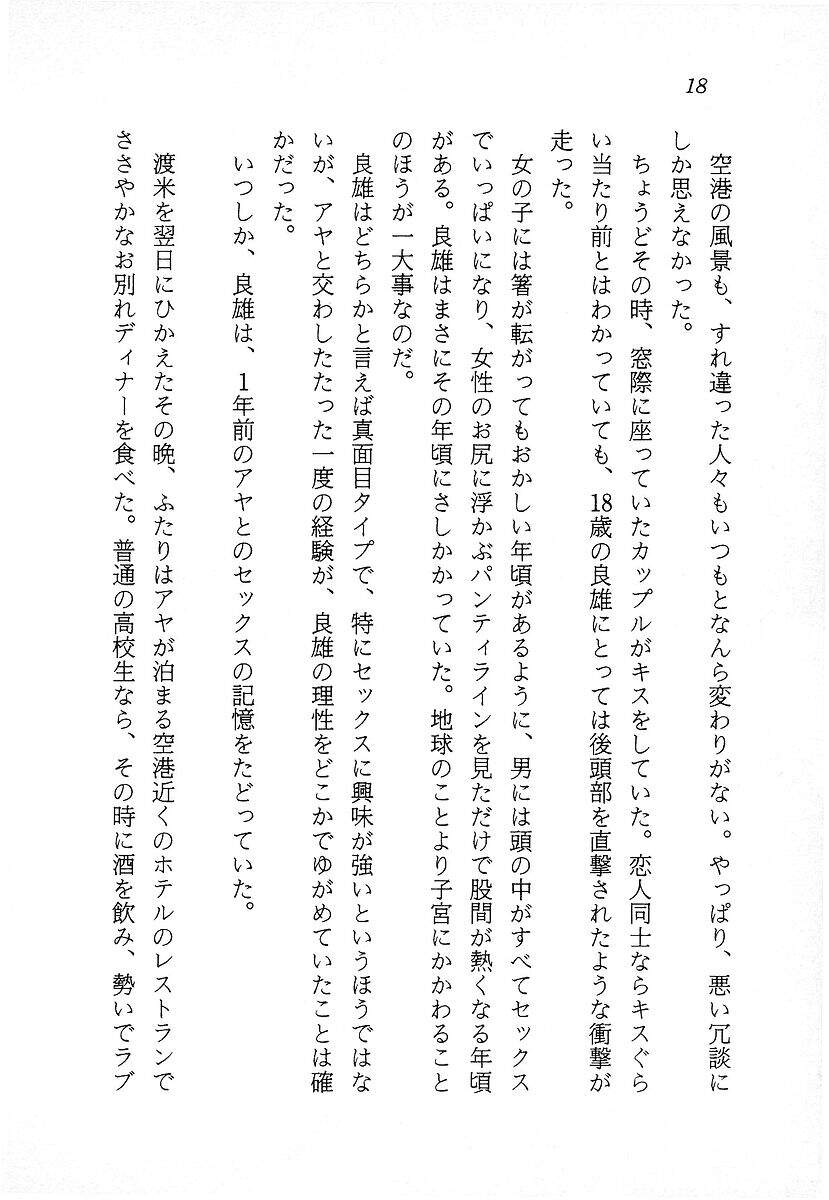 18
空港の風景も、すれ違った人々もいつもとなんら変わりがない。やっぱり、悪い冗談に
しか思えなかった。
ちょうどその時、窓際に座っていたカップルがキスをしていた。恋人同士ならキスぐら
い当たり前とはわかっていても、18歳の良雄にとっては後頭部を直撃されたような衝撃が
走った。
女の子には箸が転がってもおかしい年頃があるように、男には頭の中がすべてセックス
でいっぱいになり、女性のお尻に浮かぶパンティラインを見ただけで股間が熱くなる年頃
がある。良雄はまさにその年頃にさしかかっていた。地球のことより子宮にかかわること
のほうが一大事なのだ。
良雄はどちらかと言えば真面目タイプで、特にセックスに興味が強いというほうではな
いが、アヤと交わしたたった一度の経験が、良雄の理性をどこかでゆがめていたことは確
かだった。
いつしか、良雄は、1年前のアヤとのセックスの記憶をたどっていた。
渡米を翌日にひかえたその晩、ふたりはアヤが泊まる空港近くのホテルのレストランで
ささやかなお別れディナーを食べた。普通の高校生なら、その時に酒を飲み、勢いでラブ